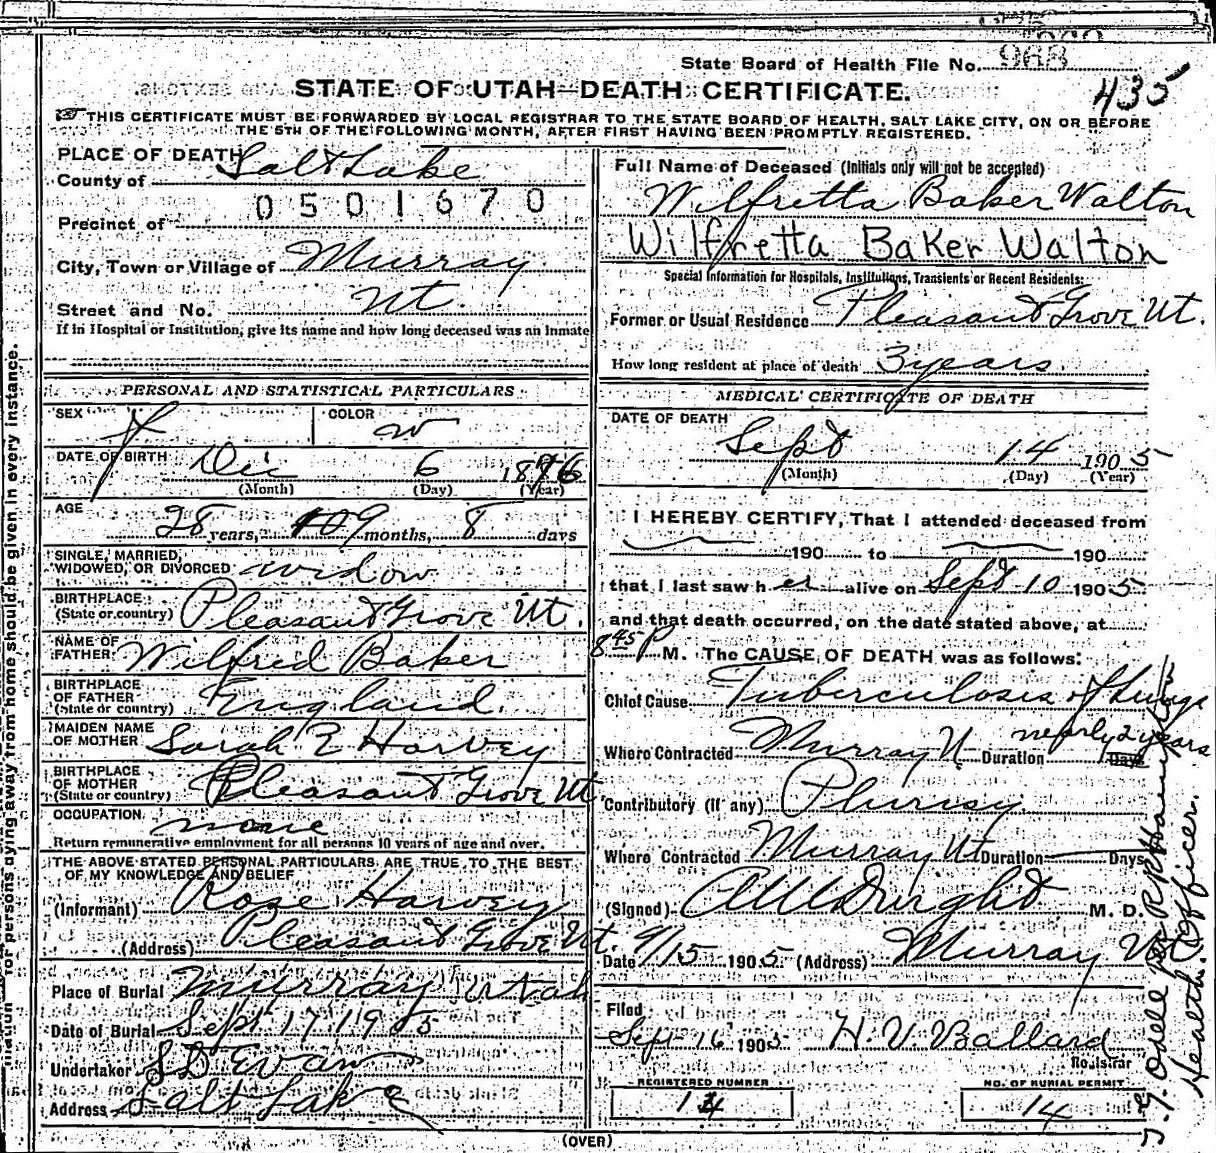 State Board of Health File No. 968
435
STATE OF UTAH—DEATH CERTIFICATE.
THIS CERTIFICATE MUST BE FORWARDED BY LOCAL REGISTRAR TO THE STATE BOARD OF HEALTH, SALT LAKE CITY, ON OR BEFORE
THE 5TH OF THE FOLLOWING MONTH, AFTER FIRST HAVING BEEN PROMPTLY REGISTERED.
PLACE OF DEATH
County of Salt Lake
0501670
Precinct of
City, Town or Village of Murray
Street and No. Ut.
If in Hospital or Institution, give its name and how long deceased was an inmate
PERSONAL AND STATISTICAL PARTICULARS
SEX f COLOR w
DATE OF BIRTH Dec 6 1876
(Month) (Day) (Year)
AGE 28 years, 09 months, 8 days
SINGLE, MARRIED,
WIDOWED, OR DIVORCED widow
BIRTHPLACE
(State or country) Pleasant Grove Ut.
NAME OF
FATHER Wilfred Baker
BIRTHPLACE
OF FATHER
(State or country) England.
MAIDEN NAME
OF MOTHER Sarah E Harvey
BIRTHPLACE
OF MOTHER
(State or country) Pleasant Grove Ut
OCCUPATION none
Return remunerative employment for all persons 10 years of age and over.
THE ABOVE STATED PERSONAL PARTICULARS ARE TRUE TO THE BEST
OF MY KNOWLEDGE AND BELIEF
(Informant) Rose Harvey
(Address) Pleasant Grove Ut.
Place of Burial Murray Utah
Date of Burial Sept 17 1905
Undertaker S D Evans
Address Salt Lake
Full Name of Deceased (Initials only will not be accepted)
Wilfretta Baker Walton
Wilfretta Baker Walton
Special Information for Hospitals, Institutions, Transients or Recent Residents:
Former or Usual Residence Pleasant Grove Ut.
How long resident at place of death 3 years
MEDICAL CERTIFICATE OF DEATH
DATE OF DEATH
Sept 14 1905
(Month) (Day) (Year)
I HEREBY CERTIFY, That I attended deceased from
190 to 190
that I last saw her alive on Sept 10 1905
and that death occurred, on the date stated above, at
8 45 P M. The CAUSE OF DEATH was as follows:
Chief Cause Tuberculosis of Lungs
Where Contracted Murray U Duration nearly 2 years Days
Contributory (if any) Plurisy
Where Contracted Murray Ut Duration Days
(Signed) M. D.
Date 9/15 1905 (Address) Murray Ut
Filed
Sept 16 1905 H. V. Ballard
Registrar
REGISTERED NUMBER NO. OF BURIAL PERMIT
14 14
(OVER)
for persons dying away from home should be given in every instance.
Health Officer.